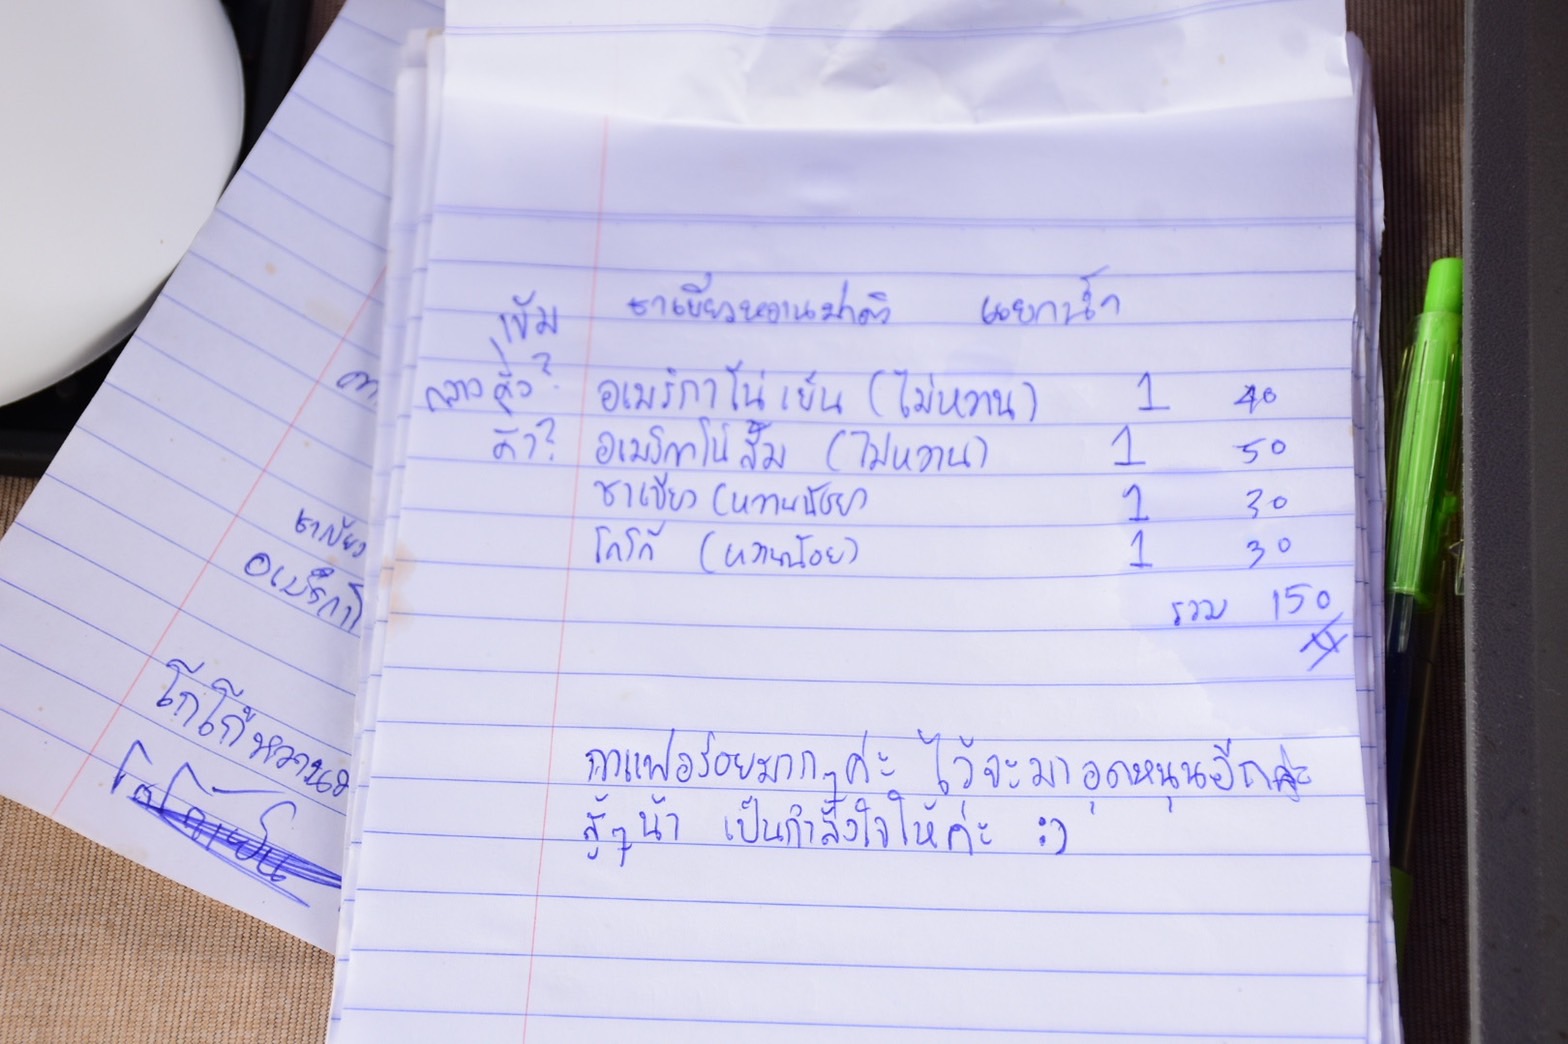 เข้ม ชาเขียวหวานปกติ แยกน้ำ
คั่ว? อเมริกาโน่เย็น (ไม่หวาน) 1 40
อเมริกาโน่ส้ม (ไม่หวาน) 1 50
ชาเขียว (หวานน้อย) 1 30
โกโก้ (หวานน้อย) 1 30
รวม 150
กาแฟอร่อยมากๆค่ะ ไว้จะมาอุดหนุนอีกค่ะ
สู้ๆน้า เป็นกำลังใจให้ค่ะ :)
ชาเขียว
อเมริกาโ
โกโก้หวาน